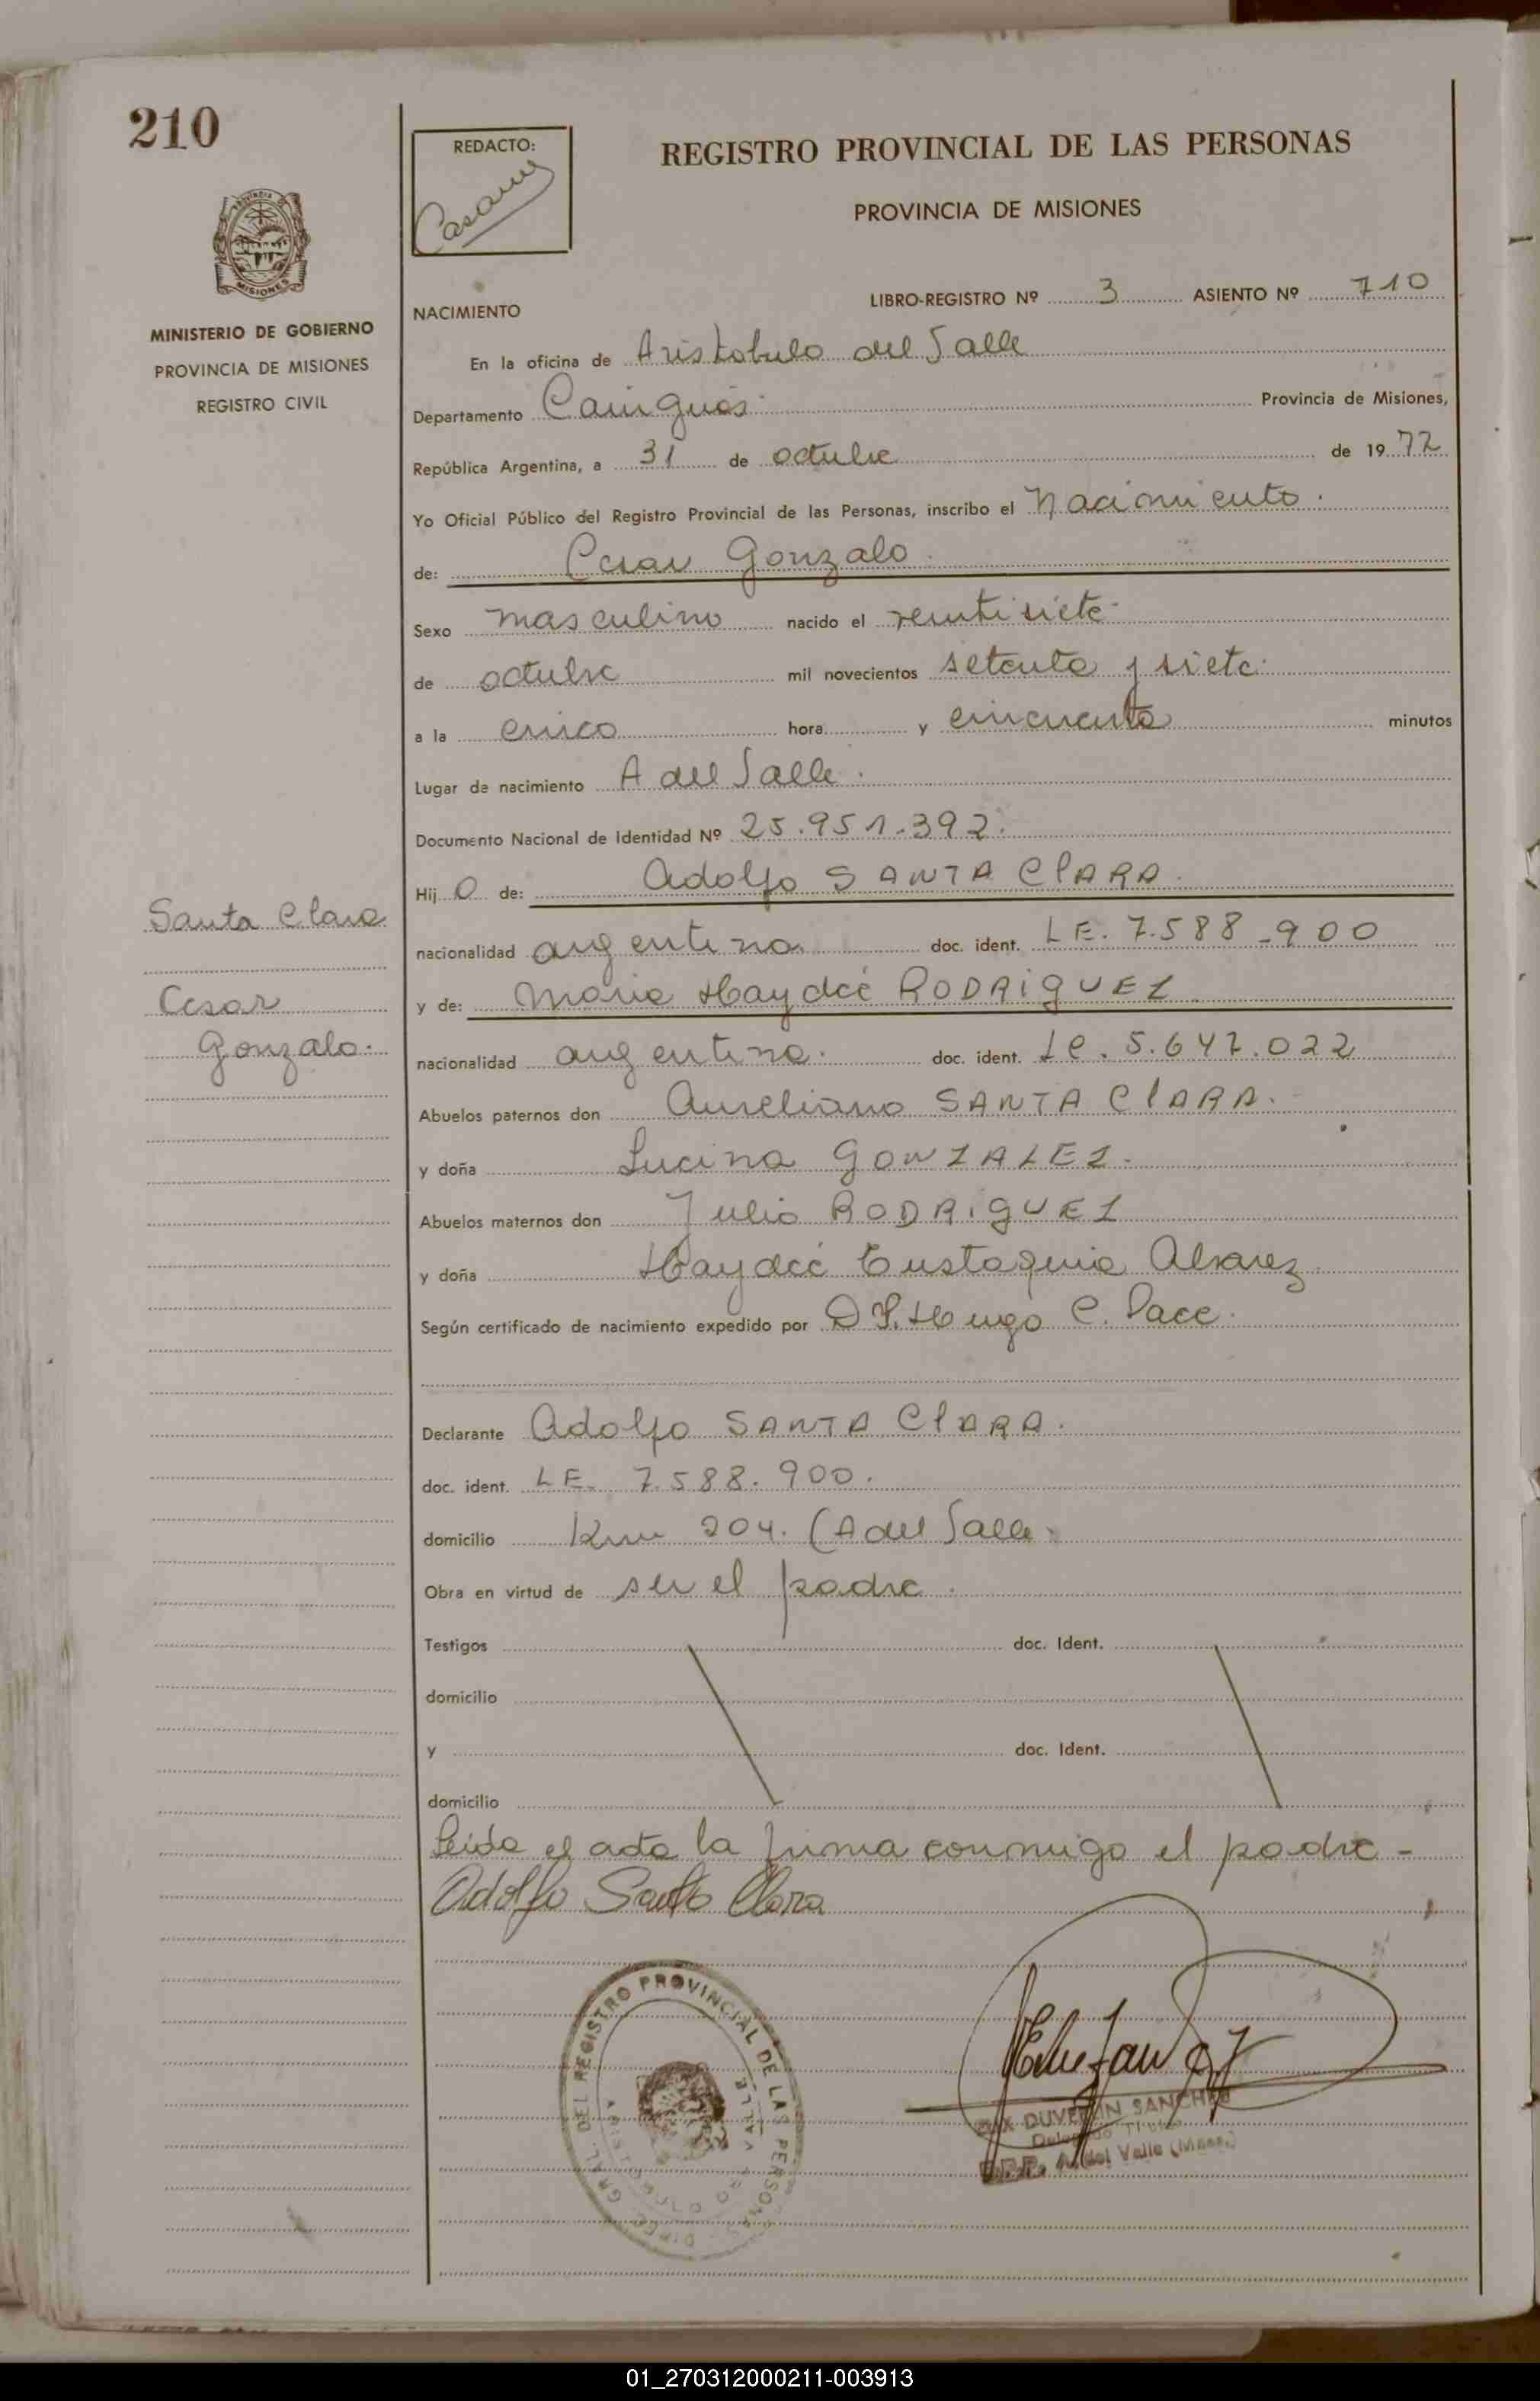 210
REDACTO:
REGISTRO PROVINCIAL DE LAS PERSONAS
PROVINCIA DE MISIONES
PROVINCIA DE
MISIONES
MINISTERIO DE GOBIERNO
PROVINCIA DE MISIONES
REGISTRO CIVIL
LIBRO-REGISTRO Nº 3 ASIENTO Nº 710
NACIMIENTO
En la oficina de Aristobulo del Valle
Departamento Cainguás Provincia de Misiones,
República Argentina, a 31 de octubre de 1977
Yo Oficial Público del Registro Provincial de las Personas, inscribo el Nacimiento.
de: Cesar Gonzalo.
Sexo masculino nacido el veintisiete
de octubre mil novecientos setenta y siete.
a la cinco hora y cincuenta minutos
Lugar de nacimiento A del Valle.
Documento Nacional de Identidad Nº 25.951.392.
Hij o de: Adolfo SANTA ClARA.
nacionalidad argentina doc. ident. LE. 7.588-900
y de: Maria Haydeé RODRiGUEZ.
nacionalidad argentina. doc. ident. LC. 5.647.022
Abuelos paternos don Aureliano SANTA ClARA.
y doña Lucina GONZALEZ.
Abuelos maternos don Julio RODRiGUEZ
y doña Haydeé Eustaquia Alvarez.
Según certificado de nacimiento expedido por Dr. Hugo C. Pace.
Santa Clara
Cesar
Gonzalo.
Declarante Adolfo SANTA ClARA.
doc. ident. LE. 7.588.900.
domicilio Km 204. (A del Valle.
Obra en virtud de ser el padre.
Testigos doc. Ident.
domicilio
y doc. Ident.
domicilio
Leida el acta la firma conmigo el padre -
Adolfo Santa Clara
DIREC. GRAL. DEL REGISTRO PROVINCIAL DE LAS PERSONAS
ARISTOBULO DEL VALLE
DUVERLIN SANCHEZ
Delegado Titular
A. del Valle (Mnes.)
01_270312000211-003913